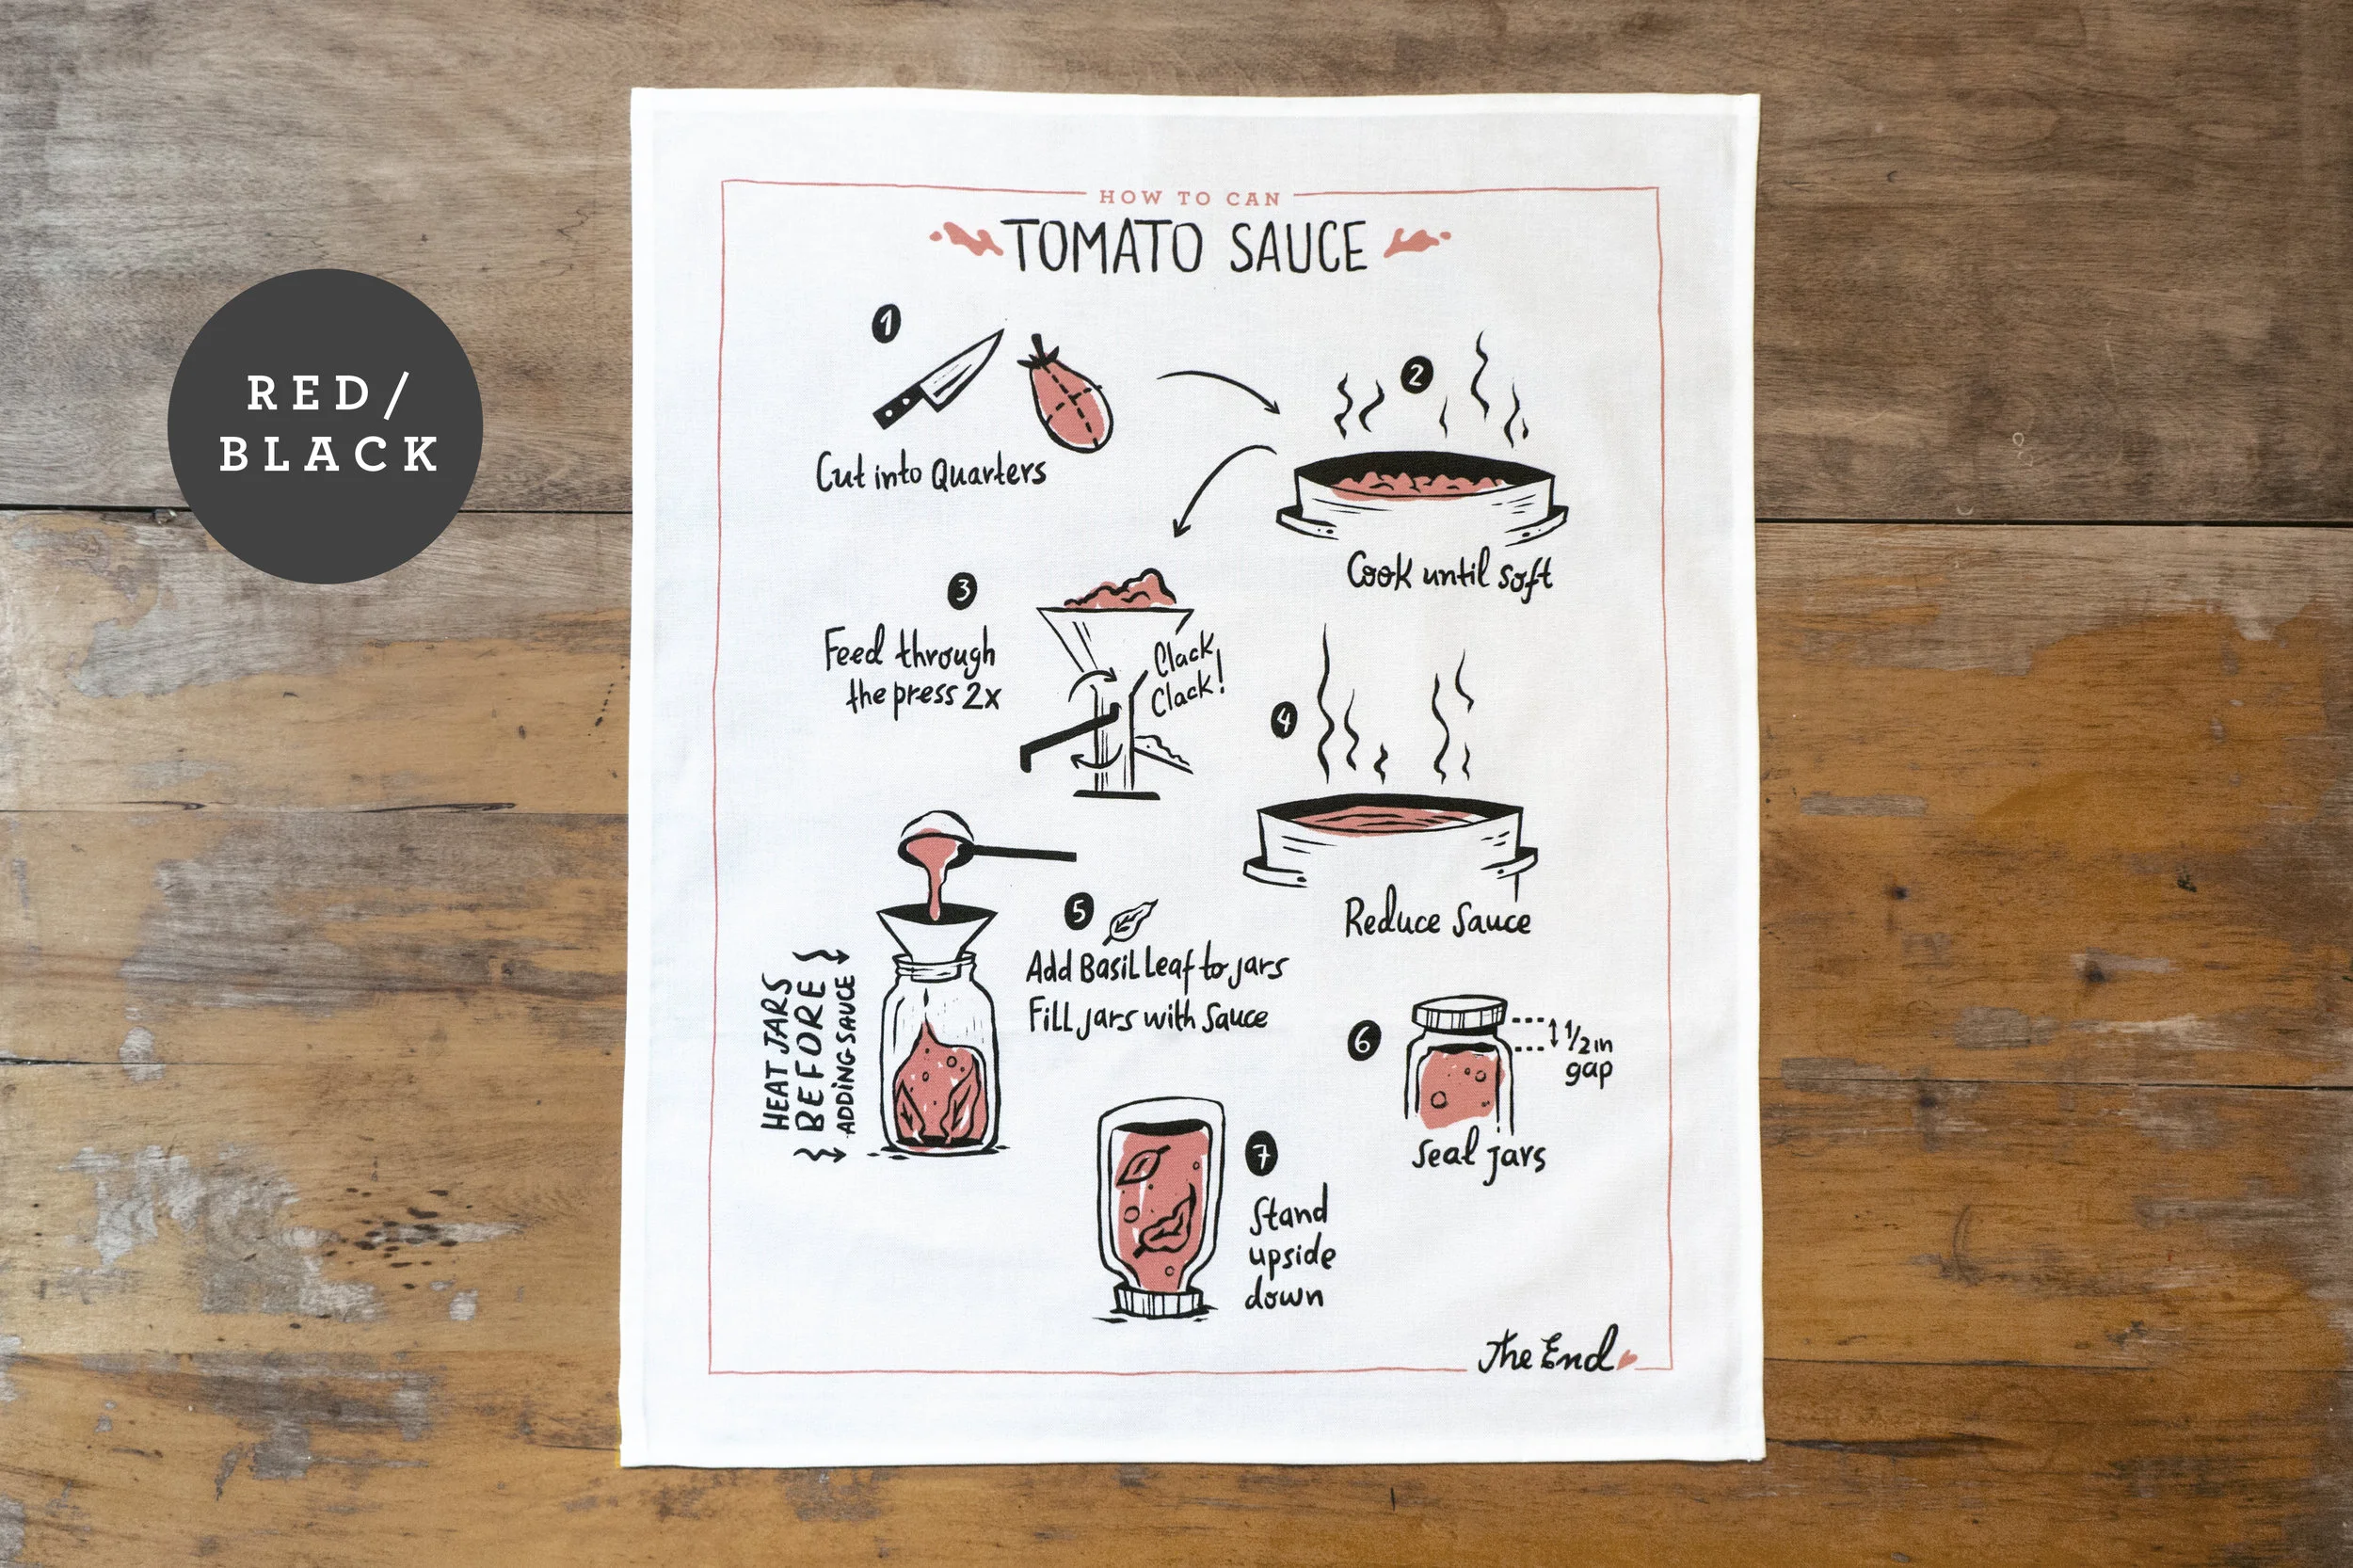 RED/
BLACK
HOW TO CAN
TOMATO SAUCE
1
Cut into Quarters
2
Cook until soft
3
Feed through
the press 2x
Clack,
Clack!
4
Reduce Sauce
5
Add Basil Leaf to jars
Fill jars with Sauce
HEAT JARS
BEFORE
ADDING SAUCE
6
1/2 in
gap
Seal jars
7
Stand
upside
down
The End